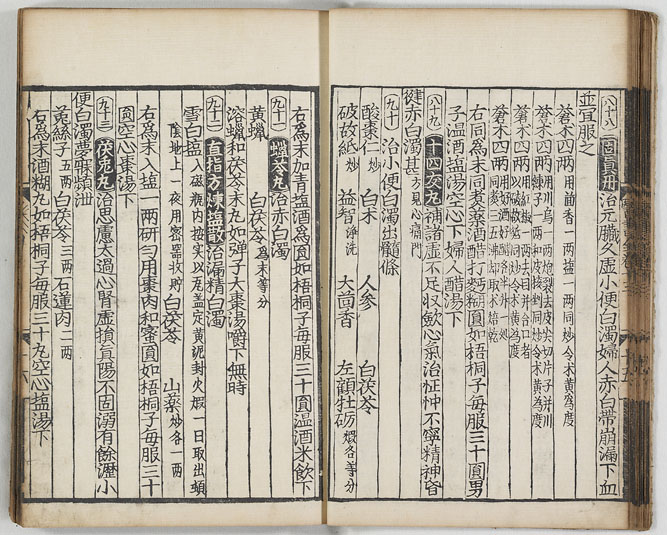 (八十八)固眞丹治元臟久虛小便白濁婦人赤白帶崩漏下血
並宜服之
蒼朮四兩用茴香一兩塩一兩同炒令朮黃爲度
蒼朮四兩用川烏一兩炮裂去皮尖切片子并川
楝子一兩和皮核劈同炒令朮黃爲度
蒼朮四兩用紅椒一兩去目并合口者
以破故紙一兩同炒令朮黃爲度
蒼朮四兩
右同爲末同煮藥酒醋打麪糊圓如梧桐子每服三十圓男
子溫酒塩湯空心下婦人醋湯下
(八十九)十四友丸補諸虛不足収斂心氣治怔忡不寧精神昏
健赤白濁甚方見心痛門
(九十)治小便白濁出髓條
酸棗仁炒 白朮 人參 白茯苓
破故紙炒 益智淨洗 大茴香 左顧牡砺煅各等分
右爲末加青塩酒爲圓如梧桐子每服三十圓溫酒米飮下
(九十一)蠟苓丸治赤白濁
黃蠟 白茯苓爲末等分
溶蠟和茯苓末丸如弹子大棗湯嚼下無時
(九十二)直指方煉塩散治漏精白濁
雪白塩入磁瓶內按实以瓦盖定黃泥封火煅一日取出頓
陰地上一夜用密器收貯 白茯苓 山薬炒各一兩
右爲末入塩一兩研匀用棗肉和蜜圓如梧桐子每服三十
圓空心棗湯下
(九十三)茯兎丸治思慮太過心腎虛損眞陽不固溺有餘瀝小
便白濁夢寐頻泄
菟絲子五兩 白茯苓三兩 石蓮肉二兩
右爲末酒糊丸如梧桐子每服三十丸空心塩湯下